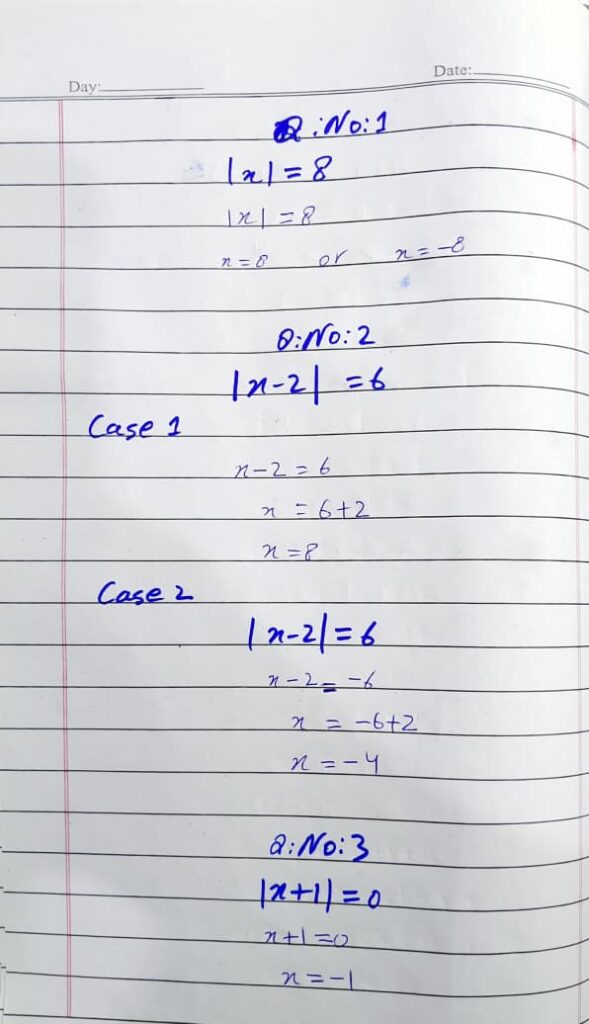 Day:
Date:
Q:No:1
|x|=8
|x|=8
x=8 or x=-8
Q:No:2
|x-2| =6
Case 1
x-2=6
x =6+2
x=8
Case 2
|x-2|=6
x-2=-6
x = -6+2
x=-4
Q:No:3
|x+1|=0
x+1=0
x=-1